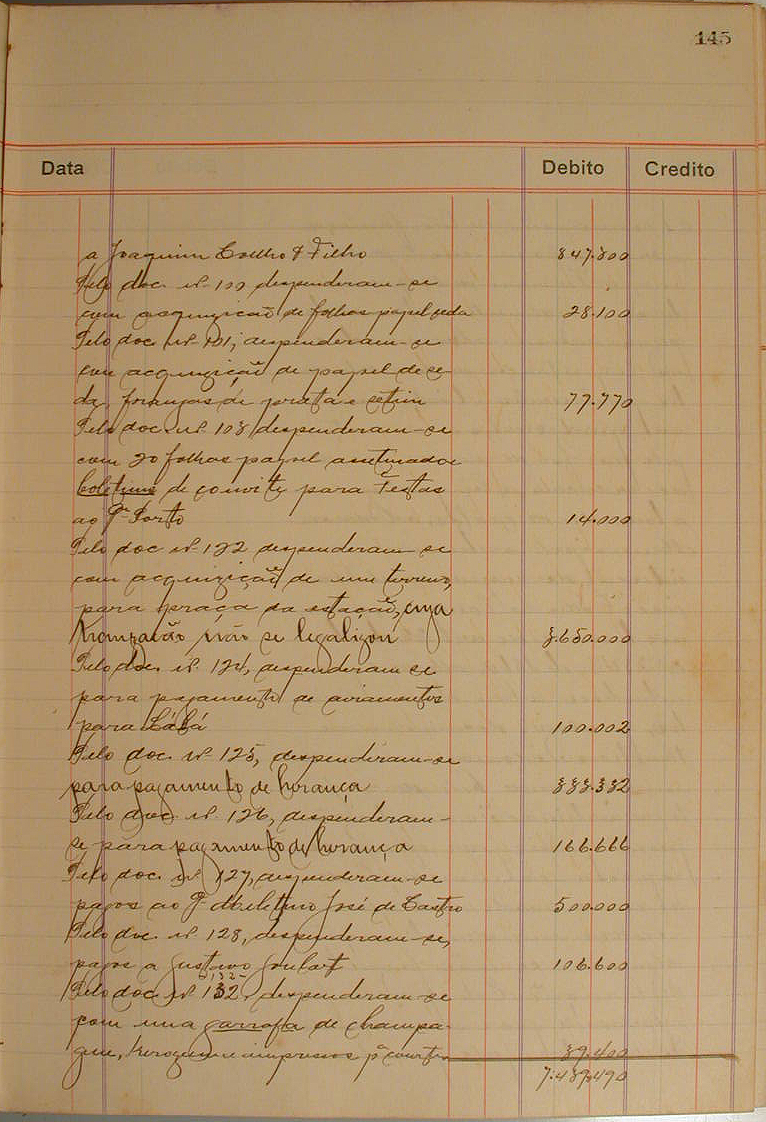 145
Data Debito Credito
a Joaquim Coelho & Filho 847.800
Pelo doc. nº 100 despenderam-se
com acquizicaõ de folhas papel seda 28.100
Pelo doc nº 101, despenderam-se
com acquiziçaõ de papel de se-
da, franjas de prata e setim 77.770
Pelo doc. nº 108 despenderam-se
com 20 folhas papel assetinado e
boletins de convite para Festas
ao Porto 14.000
Pelo doc nº 122 despenderam-se
com acquiziçaõ de um terreno,
para praça da estação, cuja
não se legalizou 3.650.000
Pelo doc. nº 124, despenderam se
para pagamento de aviamentos
para Lálá 100.002
Pelo doc. nº 125, despenderam-se
para pagamento de herança 333.332
Pelo doc. nº 126, despenderam-
se para pagamento de herança 166.666
Pelo doc. nº 127, despenderam-se
pagos ao José de Castro 500.000
Pelo doc. nº 128, despenderam-se,
pagos a Gustavo Goulart 106.600
-132-
Pelo doc. nº 132, despenderam-se
com uma garrafa de champa-
gne, kerozene e impressos pª 39.400
7.489.490